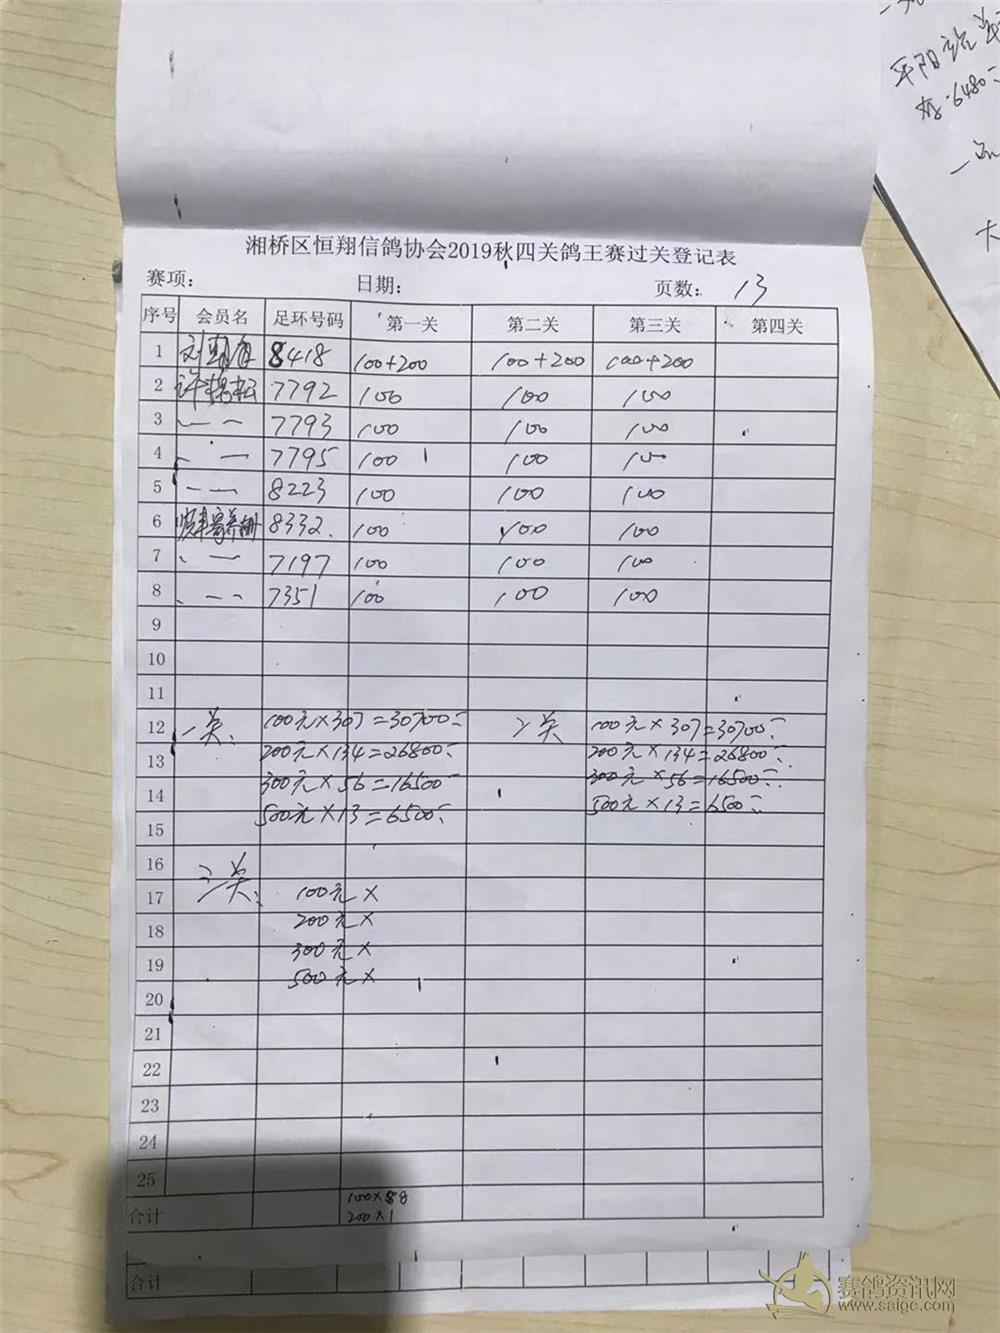 平阳
6480
大
湘桥区恒翔信鸽协会2019秋四关鸽王赛过关登记表
赛项: 日期: 页数: 13
序号 会员名 足环号码 第一关 第二关 第三关 第四关
1 刘 8418 100+200 100+200 100+200
2 许 7792 100 100 100
3 〃 7793 100 100 100
4 〃 7795 100 100 100
5 〃 8223 100 100 100
6 8332 100 100 100
7 〃 7197 100 100 100
8 〃 7351 100 100 100
9
10
11
12 一关: 100元×307=30700元 二关 100元×307=30700元
13 200元×134=26800元 200元×134=26800元
14 300元×56=16500 300元×56=16500元
15 500元×13=6500元 500元×13=6500元
16
17 三关: 100元×
18 200元×
19 300元×
20 500元×
21
22
23
24
25
合计 100×88
200×1
合计
赛鸽资讯网
www.saigc.com